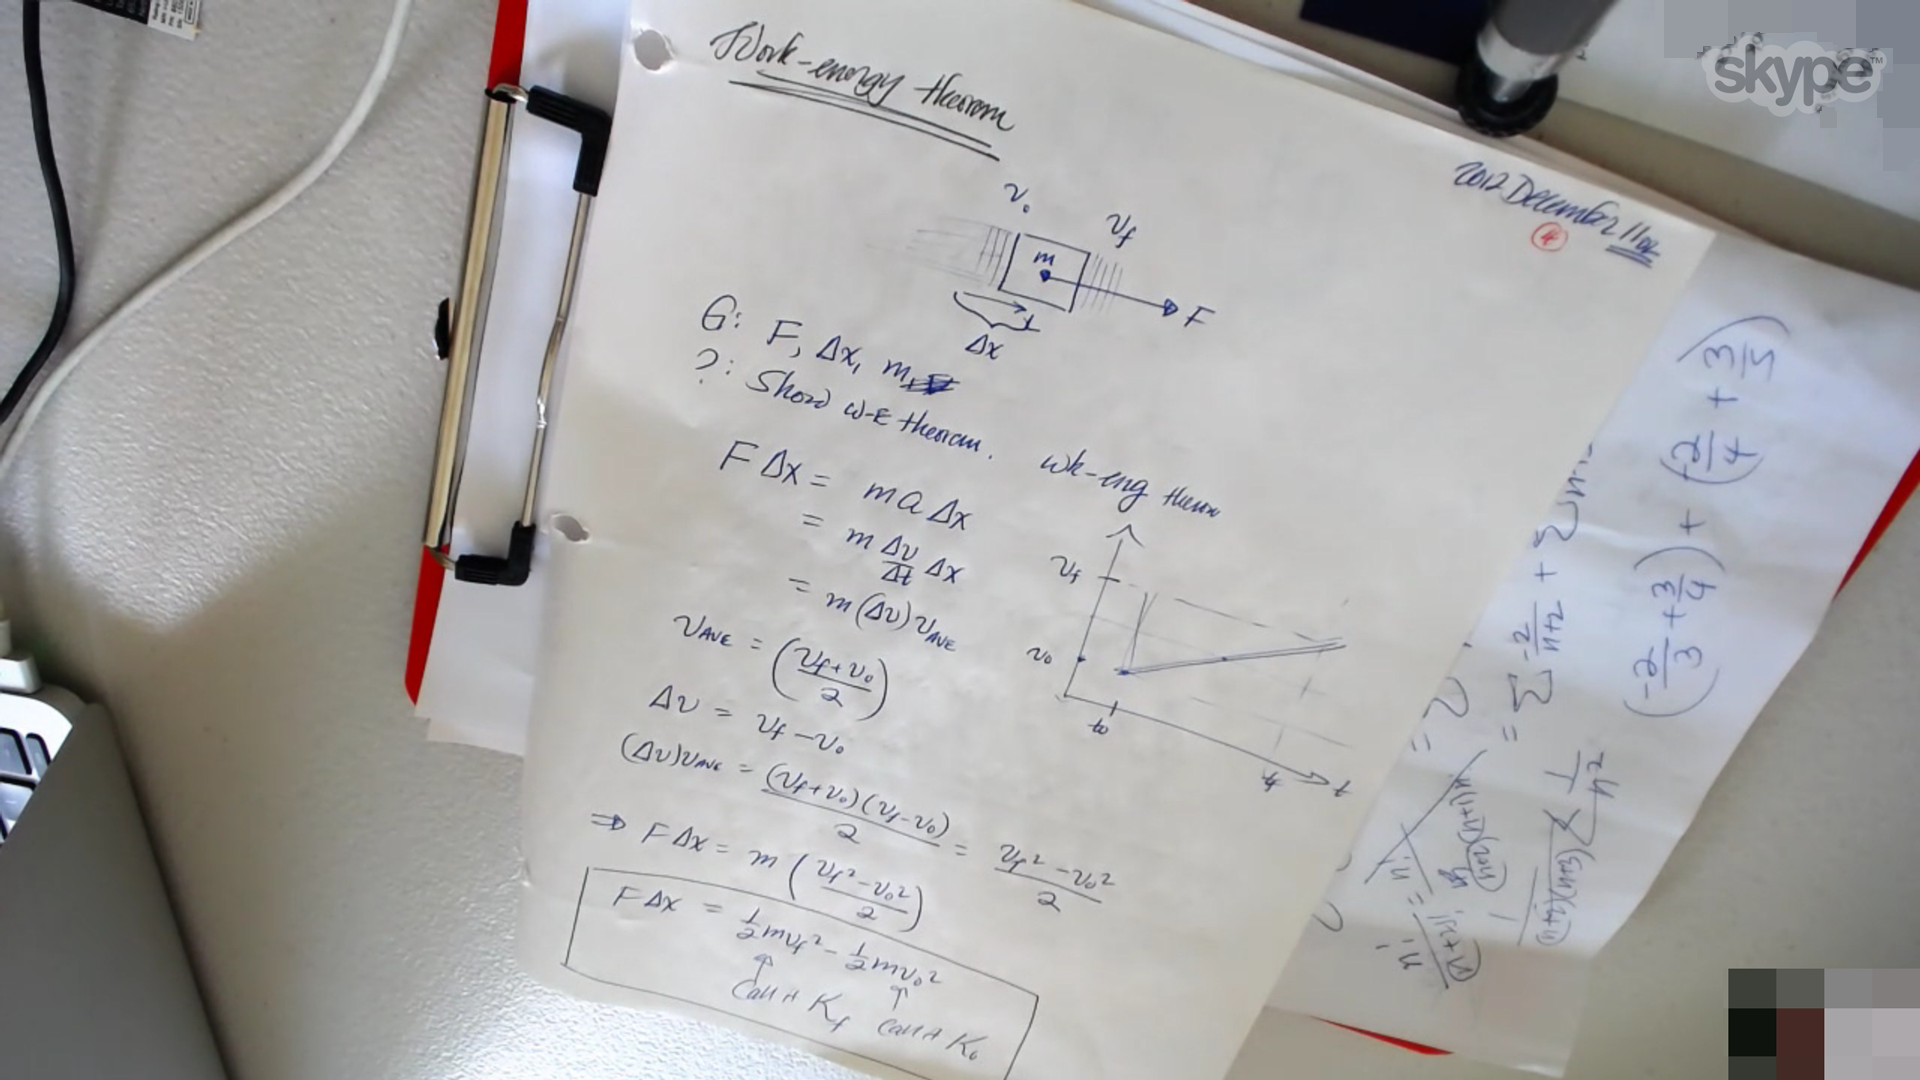 skype™
Work-energy theorem
2012 December 11
4
v₀
v_f
m
F
Δx
G: F, Δx, m,
?: Show W-E theorem.
wk-eng theorem
F Δx = m a Δx
= m Δv/Δt Δx
= m (Δv) v_AVE
v_AVE = ((v_f + v₀)/2)
Δv = v_f - v₀
(Δv) v_AVE = (v_f + v₀)(v_f - v₀)/2 = (v_f² - v₀²)/2
⇒ F Δx = m ((v_f² - v₀²)/2)
F Δx = ½ m v_f² - ½ m v₀²
↑ ↑
Call it K_f Call it K₀
v_f
v₀
t₀
t_f
t
(-2/3 + 3/4) + (-2/4 + 3/5)
= Σ -2/(n+2) + Σ
1/n²